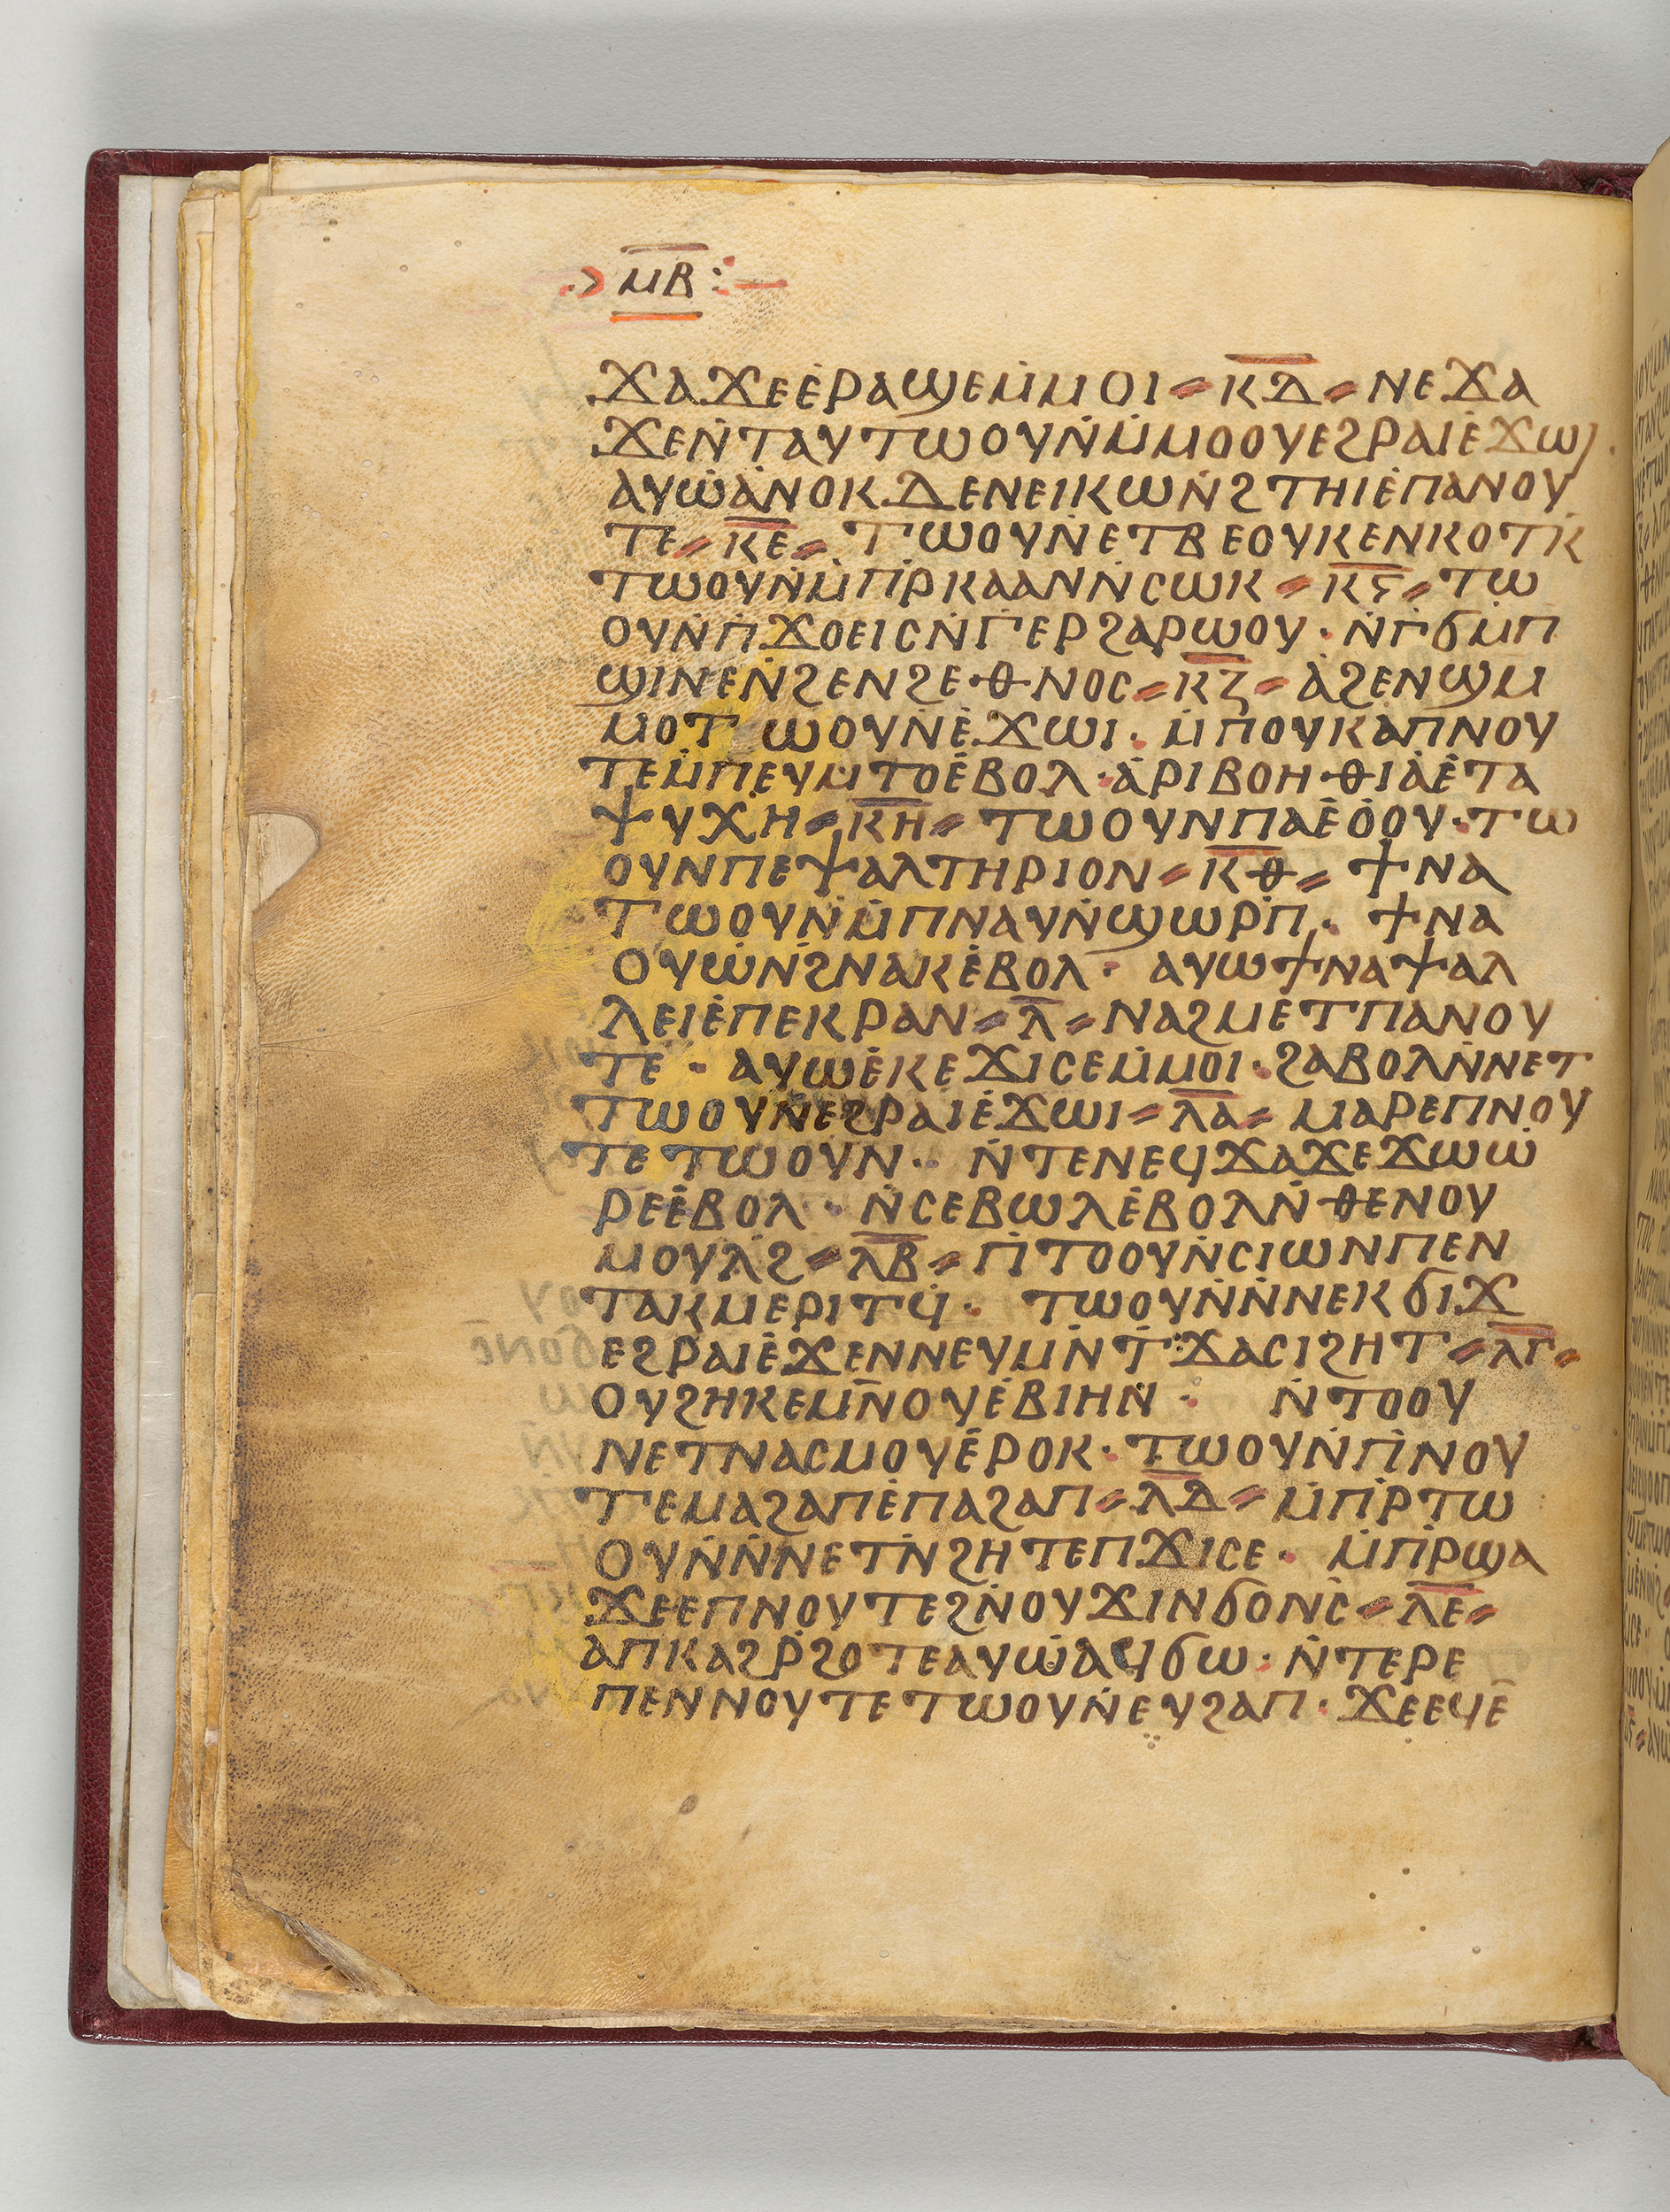 ⲙ̅ⲃ̅
ϫⲁϫⲉⲉ̇ⲣⲁϣⲉⲙ̇ⲙⲟⲓ ⸗ ⲕ̅ⲇ̅ ⸗ ⲛⲉϫⲁ
ϫⲉⲛ̇ⲧⲁⲩⲧⲱⲟⲩⲛ̇ⲙ̇ⲙⲟⲟⲩⲉϩⲣⲁⲓⲉ̇ϫⲱⲓ ·
ⲁⲩⲱ̇ⲁ̇ⲛⲟⲕⲇⲉⲛⲉⲓⲕⲱⲛ̇ϩⲧⲏⲓⲉ̇ⲡⲁⲛⲟⲩ
ⲧⲉ ⸗ ⲕ̅ⲉ̅ ⸗ ⲧⲱⲟⲩⲛ̇ⲉⲧⲃⲉⲟⲩⲕⲉⲛⲕⲟⲧⲕ̇
ⲧⲱⲟⲩⲛ̇ⲙ̇ⲡⲣ̇ⲕⲁⲁⲛⲛ̇ⲥⲱⲕ ⸗ ⲕ̅ⲋ̅ ⸗ ⲧⲱ
ⲟⲩⲛ̇ⲡ̇ϫⲟⲉⲓⲥⲛ̇ⲅ̇ⲉⲣϩⲁⲣⲱⲟⲩ · ⲛ̇ⲅ̇ϭⲙ̇ⲡ
ϣⲓⲛⲉⲛ̇ϩⲉⲛϩⲉⲑⲛⲟⲥ ⸗ ⲕ̅ⲍ̅ ⸗ ⲁ̇ϩⲉⲛϣⲙ
ⲙⲟⲧⲱⲟⲩⲛⲉ̇ϫⲱⲓ · ⲙ̇ⲡⲟⲩⲕⲁⲡⲛⲟⲩ
ⲧⲉⲙ̇ⲡⲉⲩⲙⲧⲟⲉ̇ⲃⲟⲗ · ⲁ̇ⲣⲓⲃⲟⲏⲑⲓⲁ̇ⲉ̇ⲧⲁ
ⲯⲩⲭⲏ ⸗ ⲕ̅ⲏ̅ ⸗ ⲧⲱⲟⲩⲛⲡⲁⲉ̇ⲟ̇ⲟⲩ · ⲧⲱ
ⲟⲩⲛⲡⲉⲯⲁⲗⲧⲏⲣⲓⲟⲛ ⸗ ⲕ̅ⲑ̅ ⸗ ϯⲛⲁ
ⲧⲱⲟⲩⲛ̇ⲙ̇ⲡⲛⲁⲩⲛ̇ϣⲱⲣ̇ⲡ · ϯⲛⲁ
ⲟⲩⲱⲛ̇ϩⲛⲁⲕⲉ̇ⲃⲟⲗ · ⲁⲩⲱϯⲛⲁⲯⲁⲗ
ⲗⲉⲓⲉ̇ⲡⲉⲕⲣⲁⲛ ⸗ ⲗ̅ ⸗ ⲛⲁϩⲙⲉⲧⲡⲁⲛⲟⲩ
ⲧⲉ · ⲁⲩⲱⲉ̇ⲕⲉϫⲓⲥⲉⲙ̇ⲙⲟⲓ · ϩⲁⲃⲟⲗⲛ̇ⲛⲉⲧ
ⲧⲱⲟⲩⲛ̇ⲉϩⲣⲁⲓⲉ̇ϫⲱⲓ ⸗ ⲗ̅ⲁ̅ ⸗ ⲙⲁⲣⲉⲡⲛⲟⲩ
ⲧⲉⲧⲱⲟⲩⲛ · ⲛ̇ⲧⲉⲛⲉϥϫⲁϫⲉϫⲱⲱ̇
ⲣⲉⲉ̇ⲃⲟⲗ · ⲛ̇ⲥⲉⲃⲱⲗⲉ̇ⲃⲟⲗⲛ̇ⲑⲉⲛⲟⲩ
ⲙⲟⲩⲗϩ ⸗ ⲗ̅ⲃ̅ ⸗ ⲡ̇ⲧⲟⲟⲩⲛ̇ⲥⲓⲱⲛⲡⲉⲛ
ⲧⲁⲕⲙⲉⲣⲓⲧϥ̇ · ⲧⲱⲟⲩⲛ̇ⲛ̇ⲛⲉⲕϭⲓϫ
ⲉϩⲣⲁⲓⲉ̇ϫⲉⲛⲛⲉⲩⲙⲛ̇ⲧ̇ϫⲁⲥⲓϩⲏⲧ ⸗ ⲗ̅ⲅ̅ ⸗
ⲟⲩϩⲏⲕⲉⲙⲛ̅ⲟⲩⲉ̇ⲃⲓⲏⲛ · ⲛ̇ⲧⲟⲟⲩ
ⲛⲉⲧⲛⲁⲥⲙⲟⲩⲉ̇ⲣⲟⲕ · ⲧⲱⲟⲩⲛ̇ⲡ̇ⲛⲟⲩ
ⲧⲉⲙⲁϩⲁⲡⲉ̇ⲡⲁϩⲁⲡ ⸗ ⲗ̅ⲇ̅ ⸗ ⲙ̇ⲡ̇ⲣ̇ⲧⲱ
ⲟⲩⲛ̇ⲛ̇ⲛⲉⲧⲛ̇ϩⲏⲧⲉⲡϫⲓⲥⲉ · ⲙ̇ⲡ̇ⲣ̇ϣⲁ
ϫⲉⲉⲡⲛⲟⲩⲧⲉϩⲛ̇ⲟⲩϫⲓⲛϭⲟⲛⲥ̇ ⸗ ⲗ̅ⲉ̅ ⸗
ⲁⲡⲕⲁϩⲣ̇ϩⲟⲧⲉⲁⲩⲱ̇ⲁϥϭⲱ · ⲛ̇ⲧⲉⲣⲉ
ⲡⲉⲛⲛⲟⲩⲧⲉⲧⲱⲟⲩⲛ̇ⲉⲩϩⲁⲡ · ϫⲉⲉϥⲉ̇